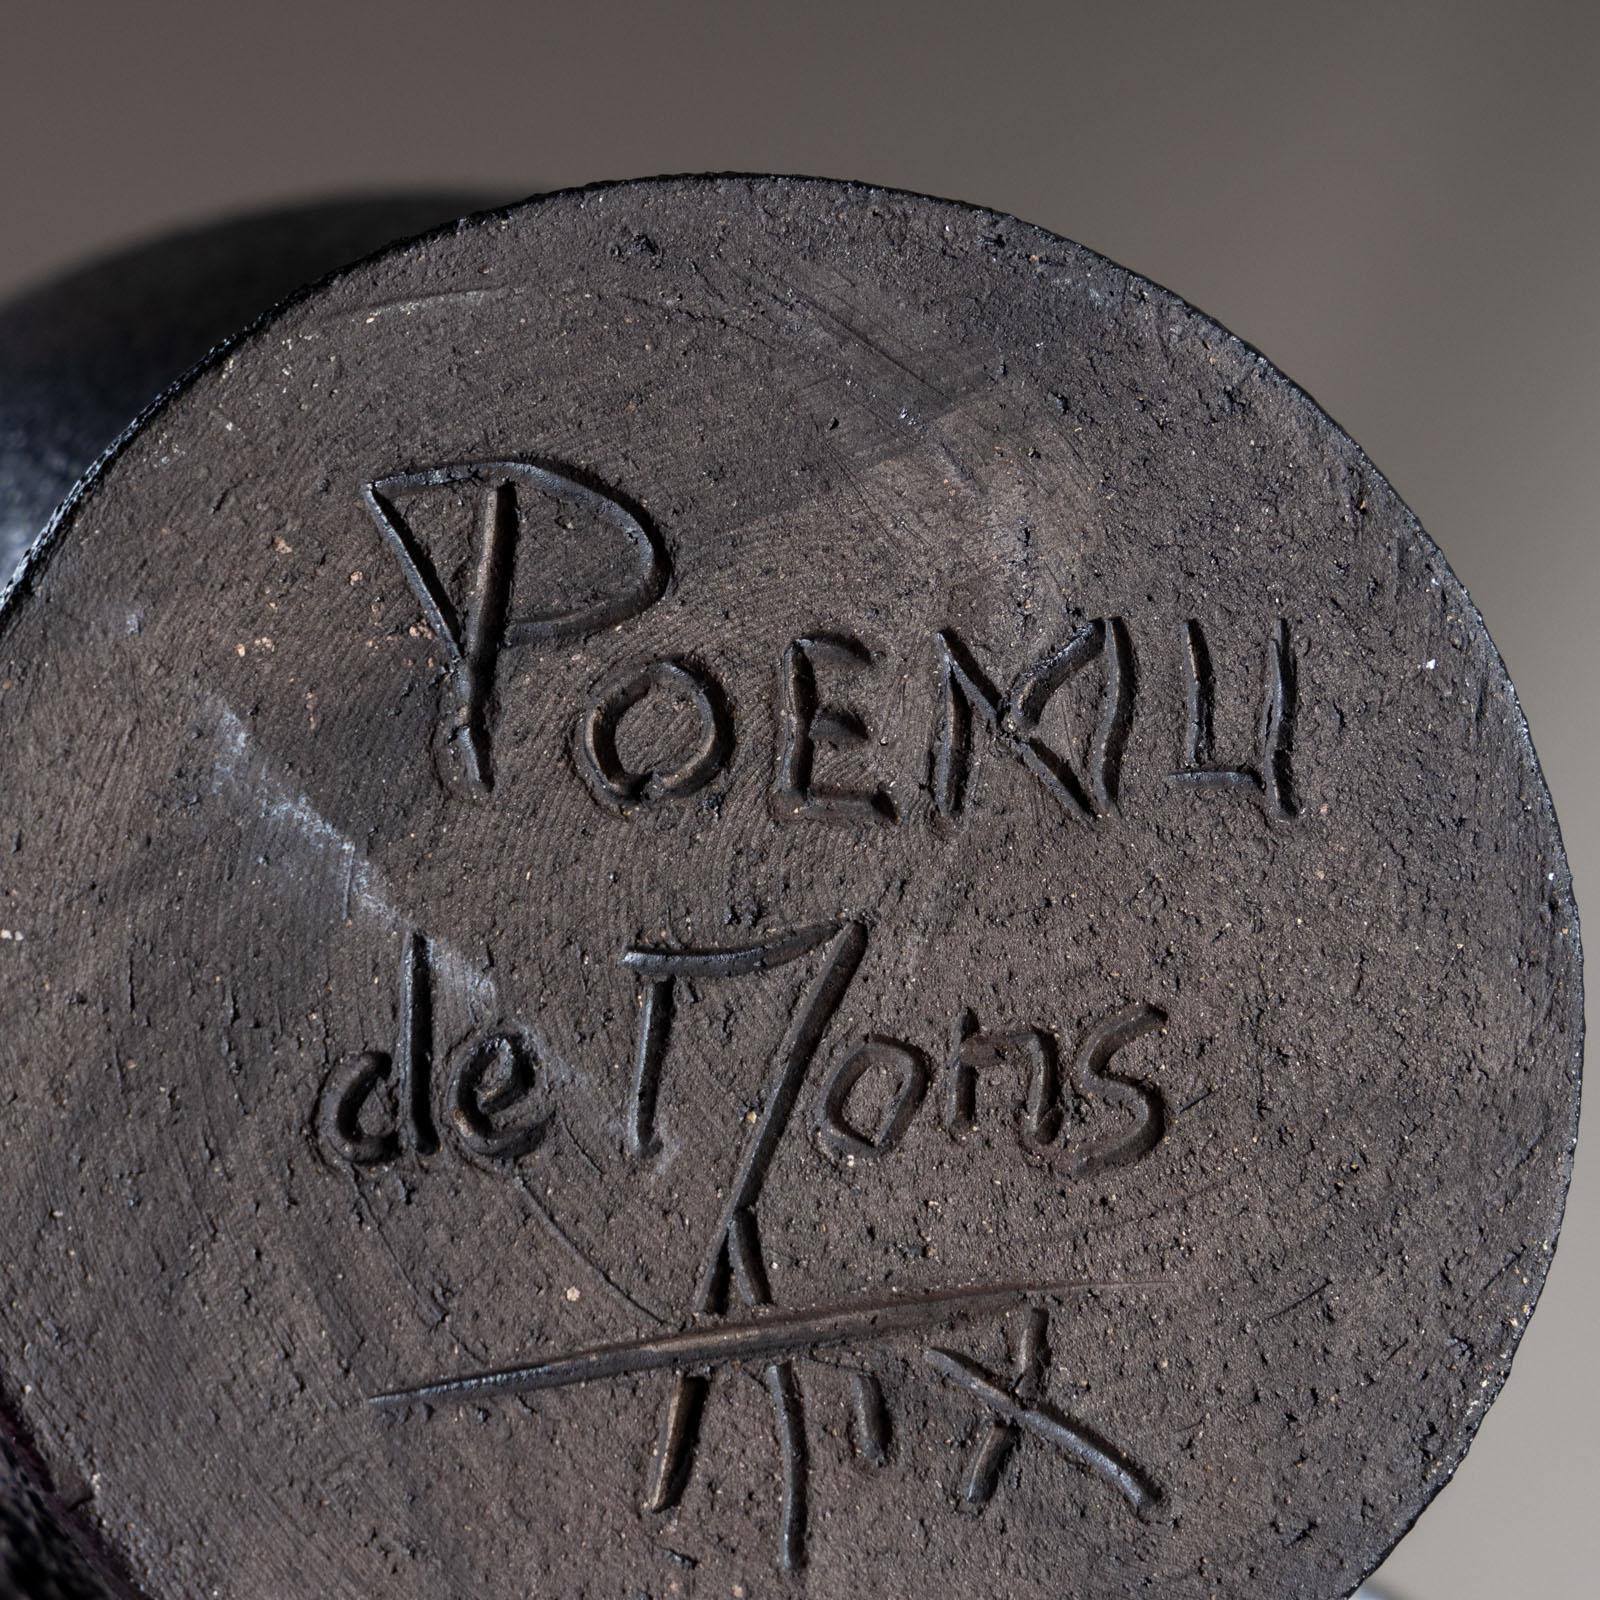 POEMU
de Mons